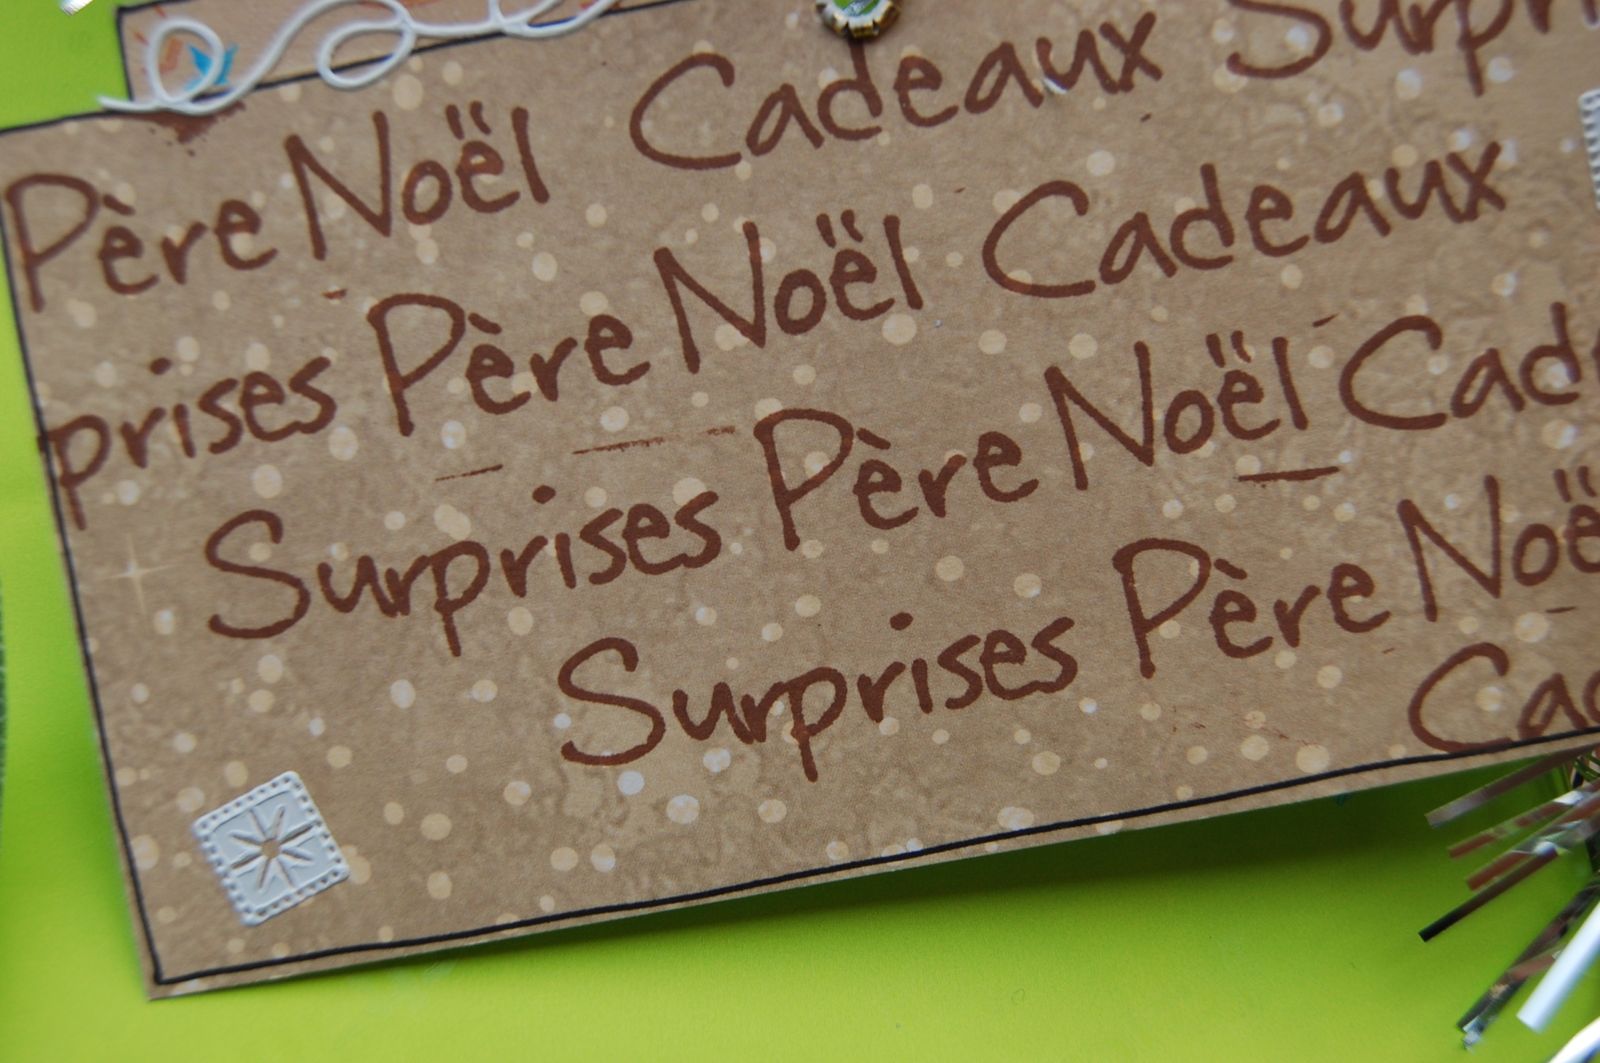 Père Noël Cadeaux Surpri
prises Père Noël Cadeaux
Surprises Père Noël Cade
Surprises Père Noë
Cad